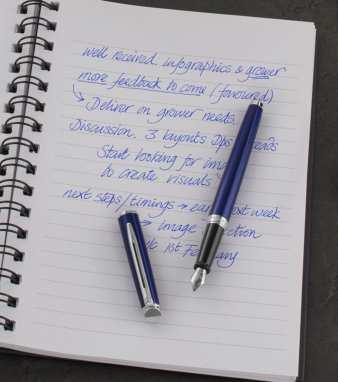 well received infographics & grower
more feedback to come (favoured)
↳ Deliver on grower needs.
Discussion. 3 layouts Dps
Start looking for
to create visuals
next steps/timings → next week
→ image
1st